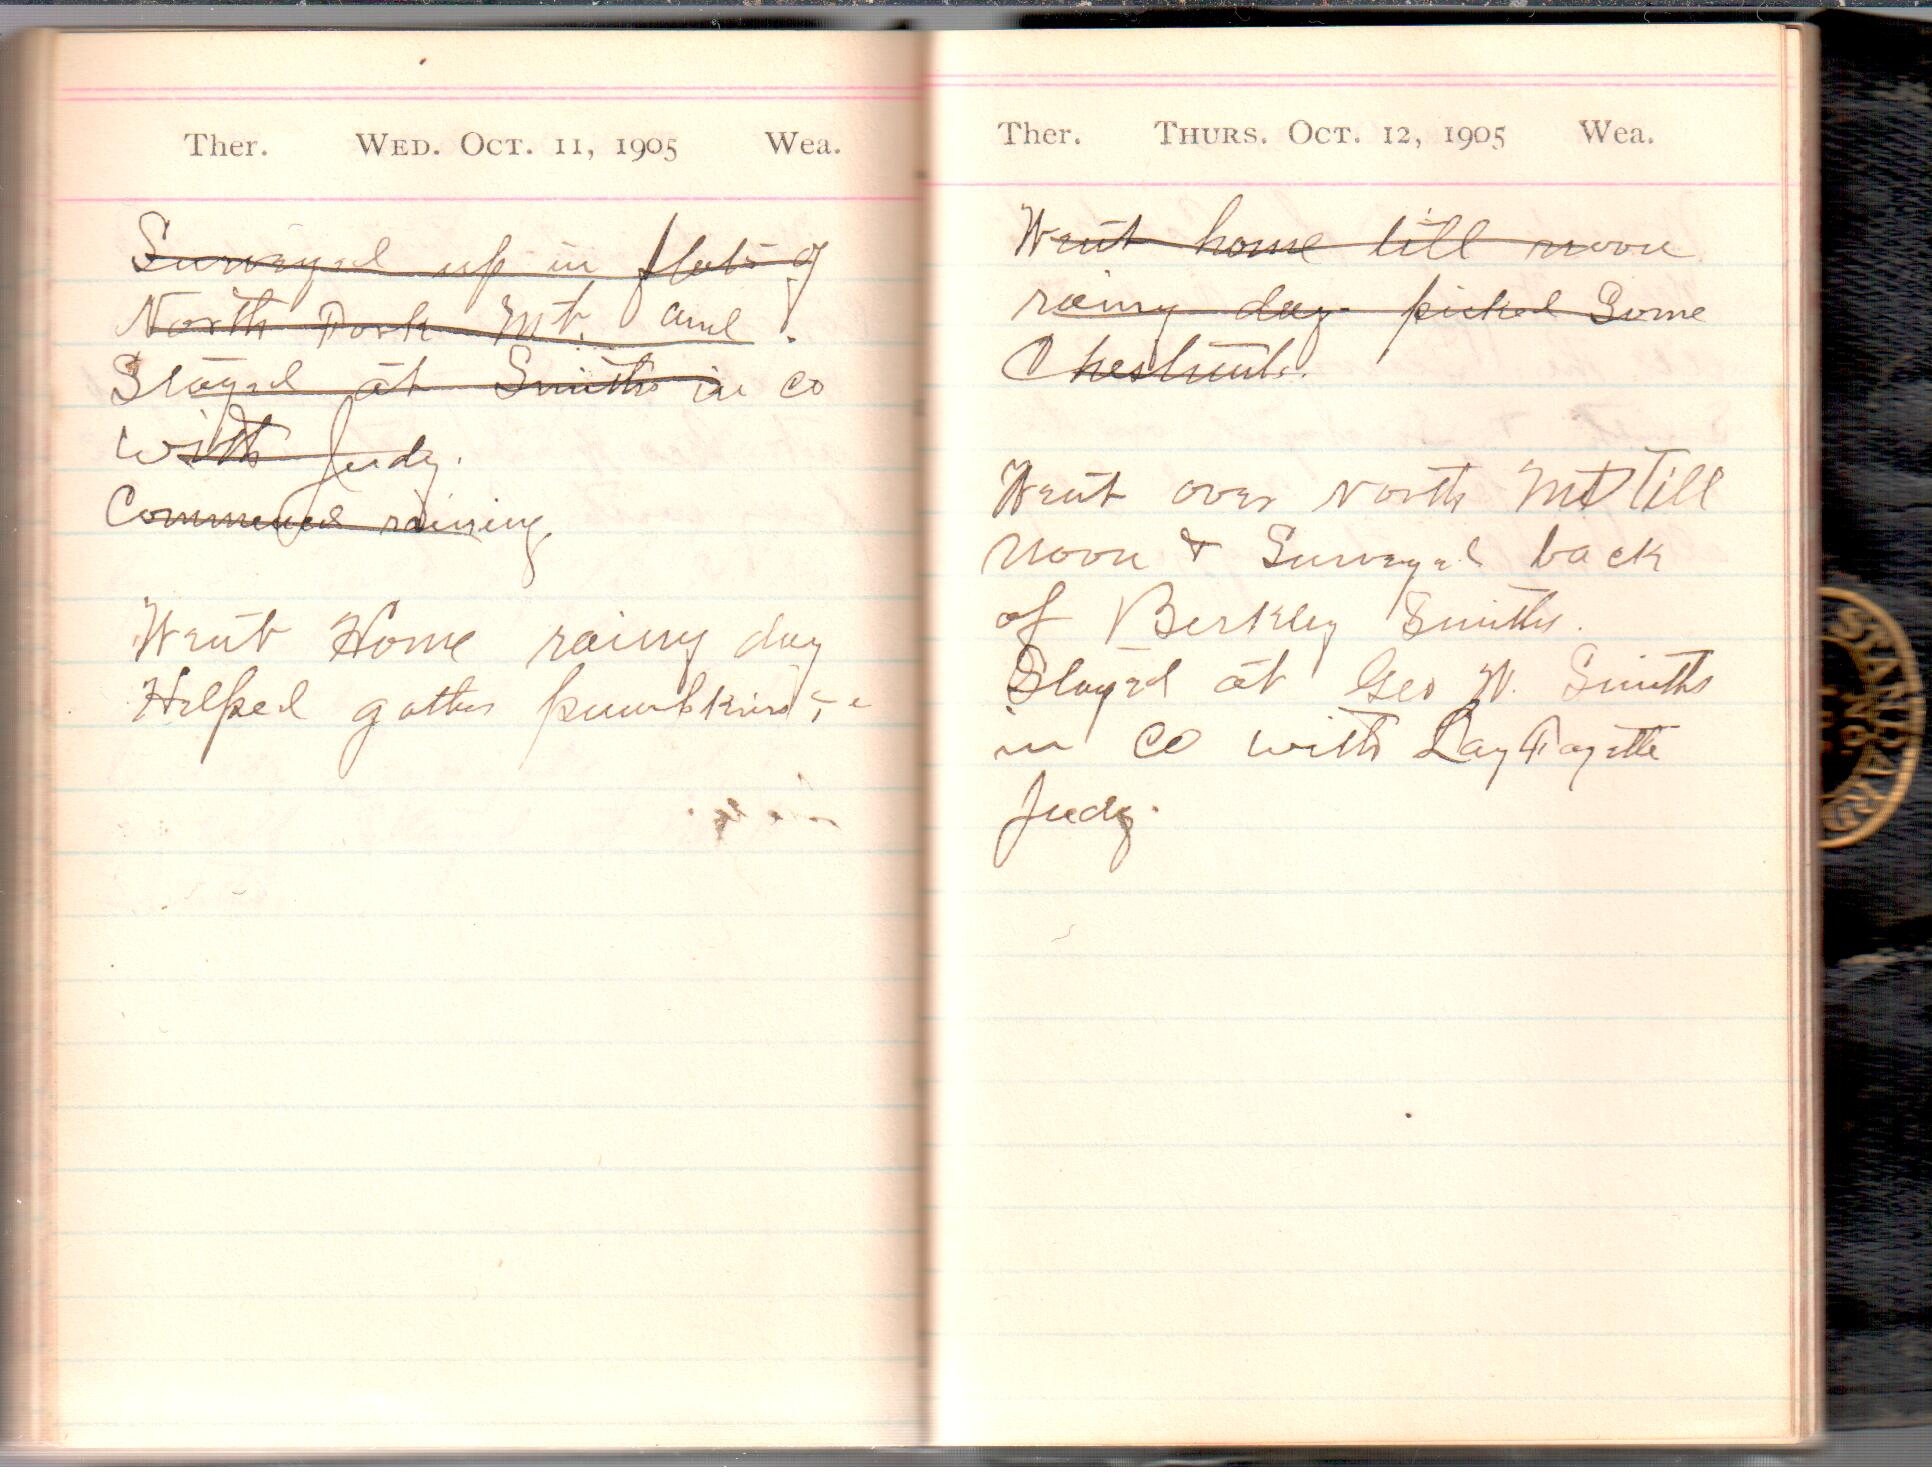 Ther. WED. OCT. 11, 1905 Wea.
Surveyed up in flats of
North Fork Mt. and
Stayed at Smiths in co
with Judy.
Commenced raining
Went Home rainy day
Helped gather pumpkins
Ther. THURS. OCT. 12, 1905 Wea.
Went home till noon
rainy day picked Some
Chestnuts.
Went over North Mt till
noon & Surveyed back
of Berkley Smiths.
Stayed at Geo W. Smiths
in co with LayFayette
Judy.
STANDARD
NO.